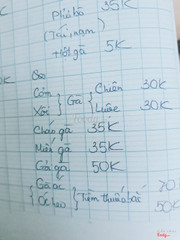 Phở bò 35K
(Tái, nạm)
Hột gà 5K
Cơm
Xôi } Gà { Chiên 30K
Luộc 30K
Cháo gà 35K
Miến gà 35K
Gỏi gà 50K
Gà ác 70
Óc heo } Tiềm thuốc bắc 50K